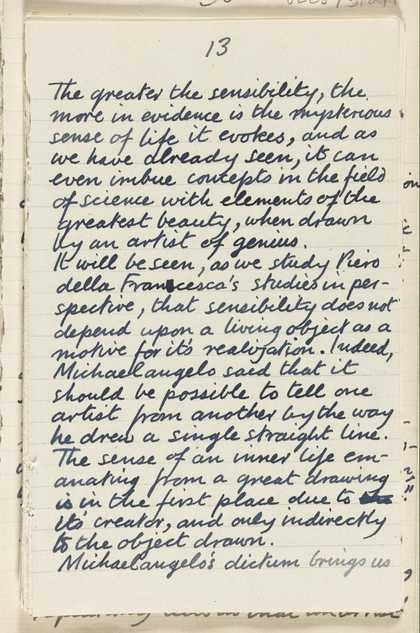 13
The greater the sensibility, the
more in evidence is the mysterious
sense of life it evokes, and as
we have already seen, it can
even imbue concepts in the field
of science with elements of the
greatest beauty, when drawn
by an artist of genius.
It will be seen, as we study Piero
della Francesca's studies in per-
spective, that sensibility does not
depend upon a living object as a
motive for it's realization. Indeed,
Michaelangelo said that it
should be possible to tell one
artist from another by the way
he drew a single straight line.
The sense of an inner life em-
anating from a great drawing
is in the first place due to
its creator, and only indirectly
to the object drawn.
Michaelangelo's dictum brings us